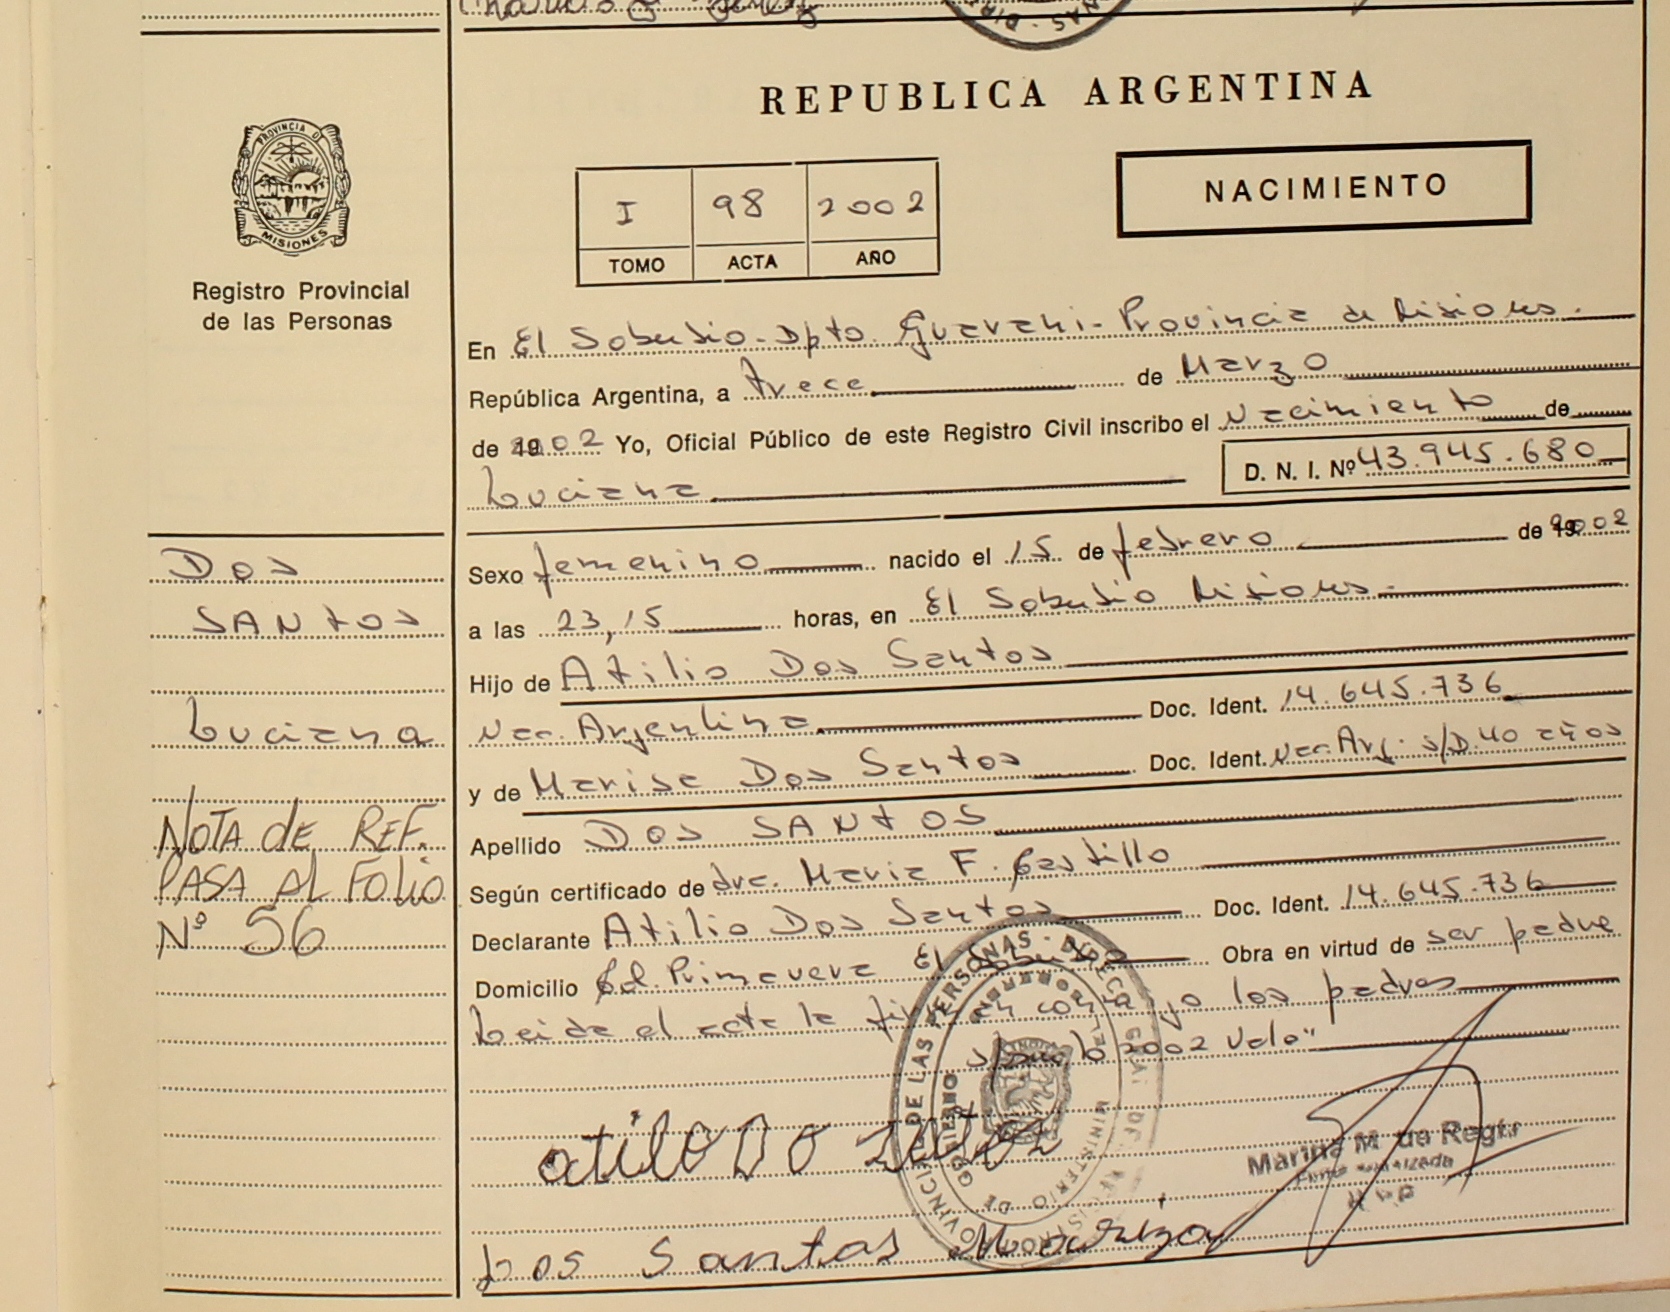 PROVINCIA D
MISIONES
Registro Provincial
de las Personas
REPUBLICA ARGENTINA
NACIMIENTO
I 98 2002
TOMO ACTA AÑO
En El Soberbio - Dpto. Guarani - Provincia de Misiones.
República Argentina, a trece de Marzo
de 2002 Yo, Oficial Público de este Registro Civil inscribo el Nacimiento de
Luciana D. N. I. Nº 43.945.680
DOS
SANTOS
Luciana
NOTA de REF.
PASA AL FOLIO
Nº 56
Sexo femenino nacido el 15 de febrero de 2002
a las 23,15 horas, en El Soberbio Misiones.
Hijo de Atilio Dos Santos
Nac. Argentina Doc. Ident. 14.645.736
y de Marisa Dos Santos Doc. Ident. Nac. Arg. s/D. 40 años
Apellido DOS SANTOS
Según certificado de dra. Maria F. Castillo
Declarante Atilio Dos Santos Doc. Ident. 14.645.736
Domicilio Col. Primavera El Soberbio Obra en virtud de ser padre
Leida el acta la firman conmigo los padres
2002 Vale"
atilo DO santos
Marina M. de Regir
Dos Santos Mariza